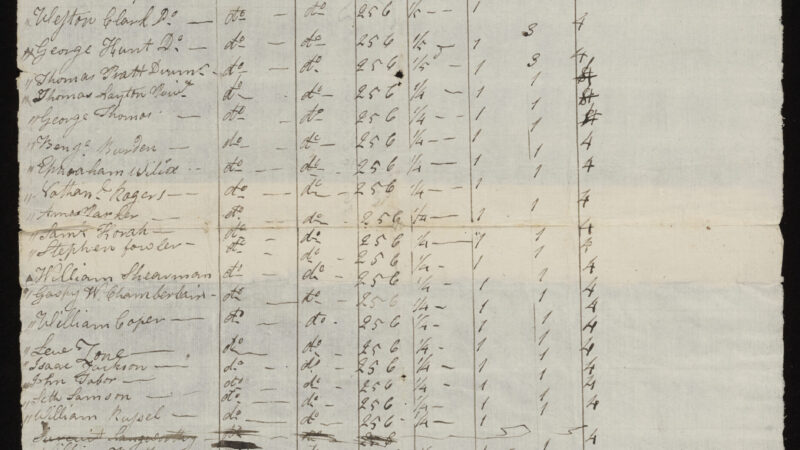 " Weston Clark Do — do — do 256 1/5 — 1 3 4
" George Hunt Do — do — do 256 1/5 — 1 3 4
" Thomas Pratt Drumr — do — do 256 1/5 — 1 1
" Thomas Layton do — do 256 1/4 — 1 1
" George Thomas — do — do 256 1/4 — 1 1
" Benja Burden — do — do 256 1/4 — 1 1 4
" Ephraham Wilcx — do — do 256 1/4 — 1 1 4
" Nathanl Rogers — do — do 256 1/4 — 1 1 4
" Amos Parker — do — do 256 1/4 — 1 1 4
" Saml Horah — do — do 256 1/4 — 1 1 4
" Stephen Fowler — do — do 256 1/4 — 1 1 4
" William Shearman do — do 256 1/4 — 1 1 4
" W. Chamberlain — do — do 256 1/4 — 1 1 4
" William Coper — do — do 256 1/4 — 1 1 4
" Leve — do — do 256 1/4 — 1 1 4
" Isaac Jackson — do — do 256 1/4 — 1 1 4
" John Tabor — do — do 256 1/4 — 1 1 4
" Seth Samson — do — do 256 1/4 — 1 1 4
" William Rusel — do — do 256 1/4 — 1 1 4